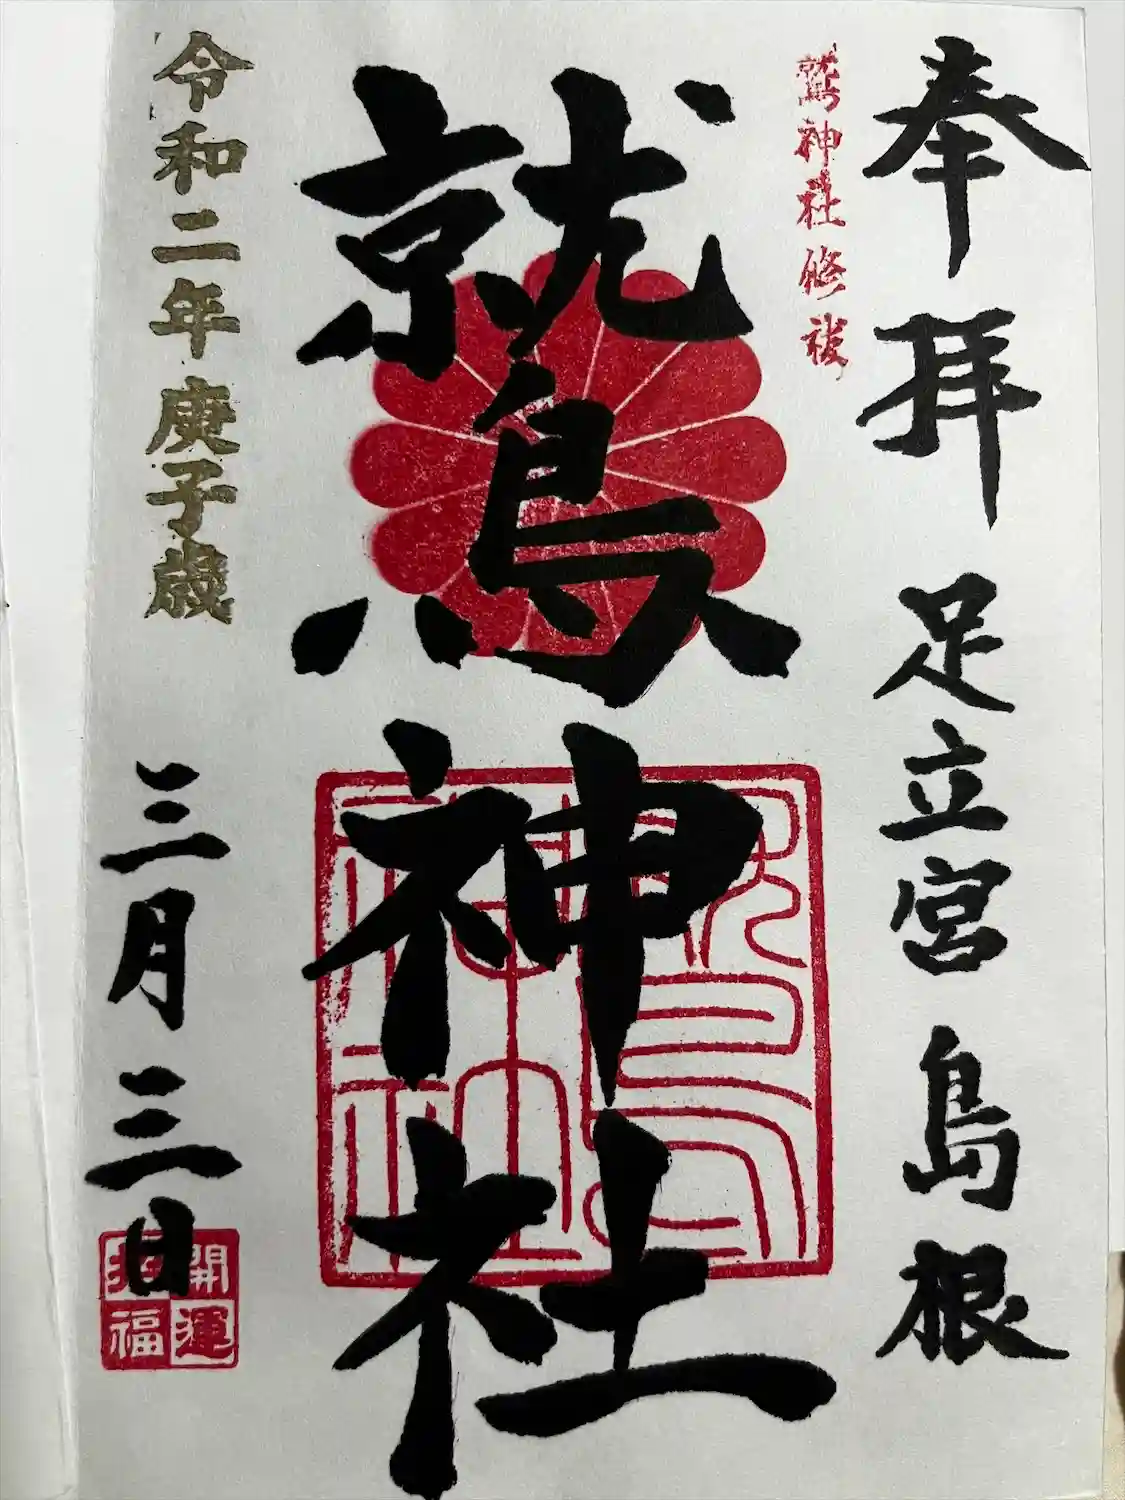 奉拝 足立宮島根
鷲神社修祓
鷲神社
令和二年庚子歳
三月三日
開運
福